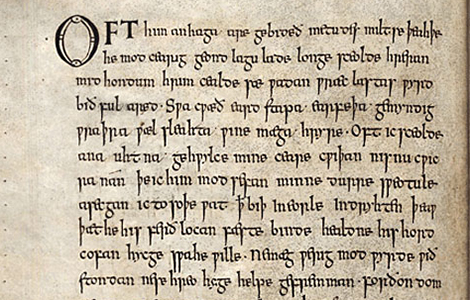 OFT him anhaga are gebideð metudes miltse þeahþe
he mod cearig geond lagu lade longe sceolde hreran
mid hondum hrim cealde sæ wadan wræc lastas wyrd
bið ful aræd · Swa cwæð eard stapa earfeþa gemyndig
wraþra wæl sleahta wine mæga hryre · Oft ic sceolde
ana uhtna gehwylce mine ceare cwiþan nis nu cwic
ra nan þe ic him mod sefan minne durre sweotule
asecgan ic to soþe wat ꝥ biþ in eorle indryhten þeaw
þæt he his ferð locan fæste binde healdne his hord
cofan hycge swa he wille · Ne mæg werig mod wyrde wið
stondan ne se hreo hyge helpe gefremman · forðon dom